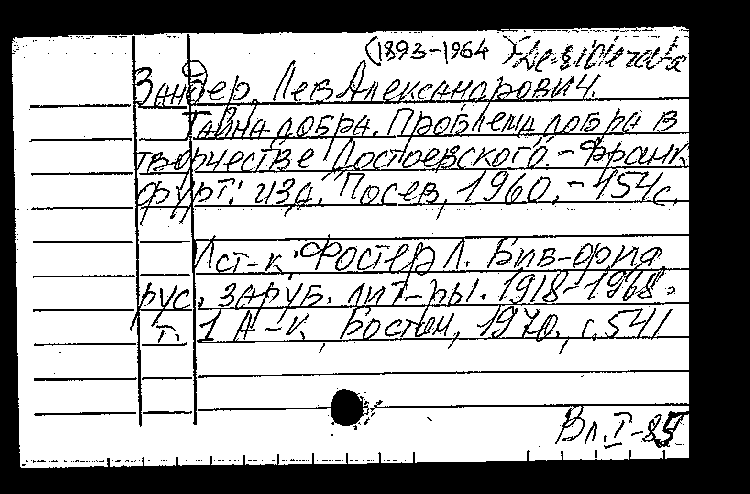 (1893-1964) Desiderata
Зандер, Лев Александрович.
Тайна добра. Проблема добра в
творчестве Достоевского. - Франк
фурт: изд. Посев, 1960. - 154 с.
Ист-к: Фостер Л. Библ-афия
рус. заруб. лит-ры. 1918-1968.
т. 1 А-К, Бостон, 1970, с. 541
Вл. I-85